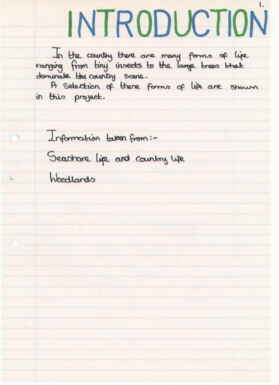 1.
INTRODUCTION
In the country there are many forms of life
ranging from tiny insects to the large trees that
dominate the country scene.
A selection of these forms of life are shown
in this project.
Information taken from:-
Seashore life and country life
Woodlands